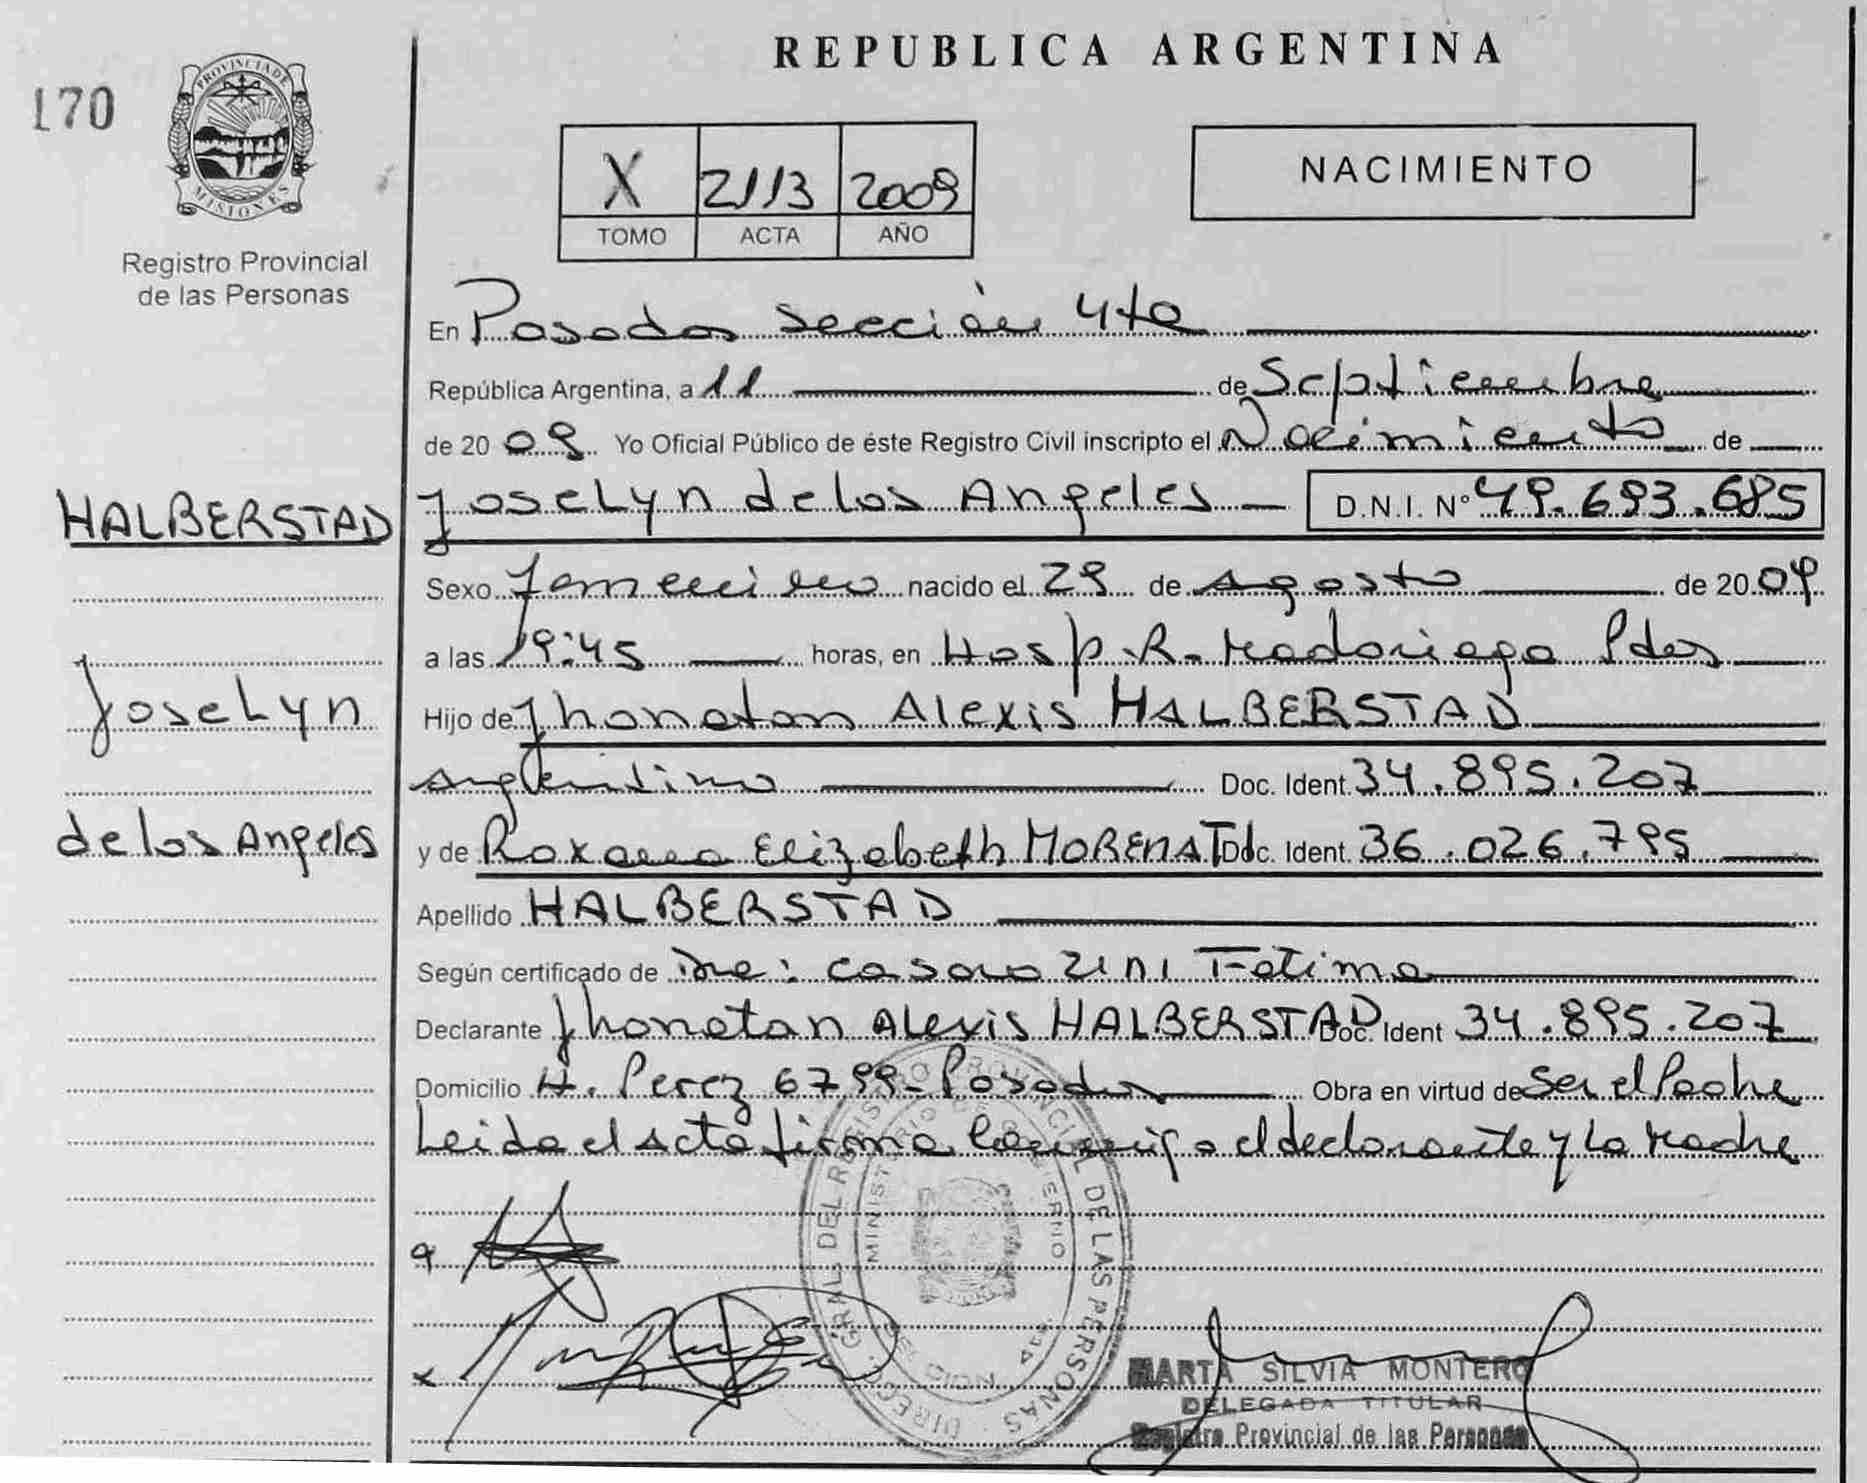 REPUBLICA ARGENTINA
170
PROVINCIA DE
MISIONES
Registro Provincial
de las Personas
X 2113 2009
TOMO ACTA AÑO
NACIMIENTO
En Posadas sección 4ta
República Argentina, a 11 de Septiembre
de 20 09 Yo Oficial Público de éste Registro Civil inscripto el Nacimiento de
HALBERSTAD
Joselyn de los Angeles D.N.I. Nº 49.693.685
Sexo Femenino nacido el 29 de Agosto de 20 09
a las 19:45 horas, en Hosp. R. Madariaga Pdas
Joselyn
Hijo de Jhonatan Alexis HALBERSTAD
argentino Doc. Ident. 34.895.207
de los Angeles
y de Roxana Elizabeth Doc. Ident. 36.026.795
Apellido HALBERSTAD
Según certificado de Fatima
Declarante Jhonatan Alexis HALBERSTAD Doc. Ident 34.895.207
Domicilio A. Perez 6799 - Posadas Obra en virtud de ser el Padre
Leida el Acta firma conmigo el declarante y la Madre
DIRECC. GRAL. DEL REGISTRO PROVINCIAL DE LAS PERSONAS
MINISTERIO DE GOBIERNO
MARTA SILVIA MONTERO
DELEGADA TITULAR
Registro Provincial de las Personas